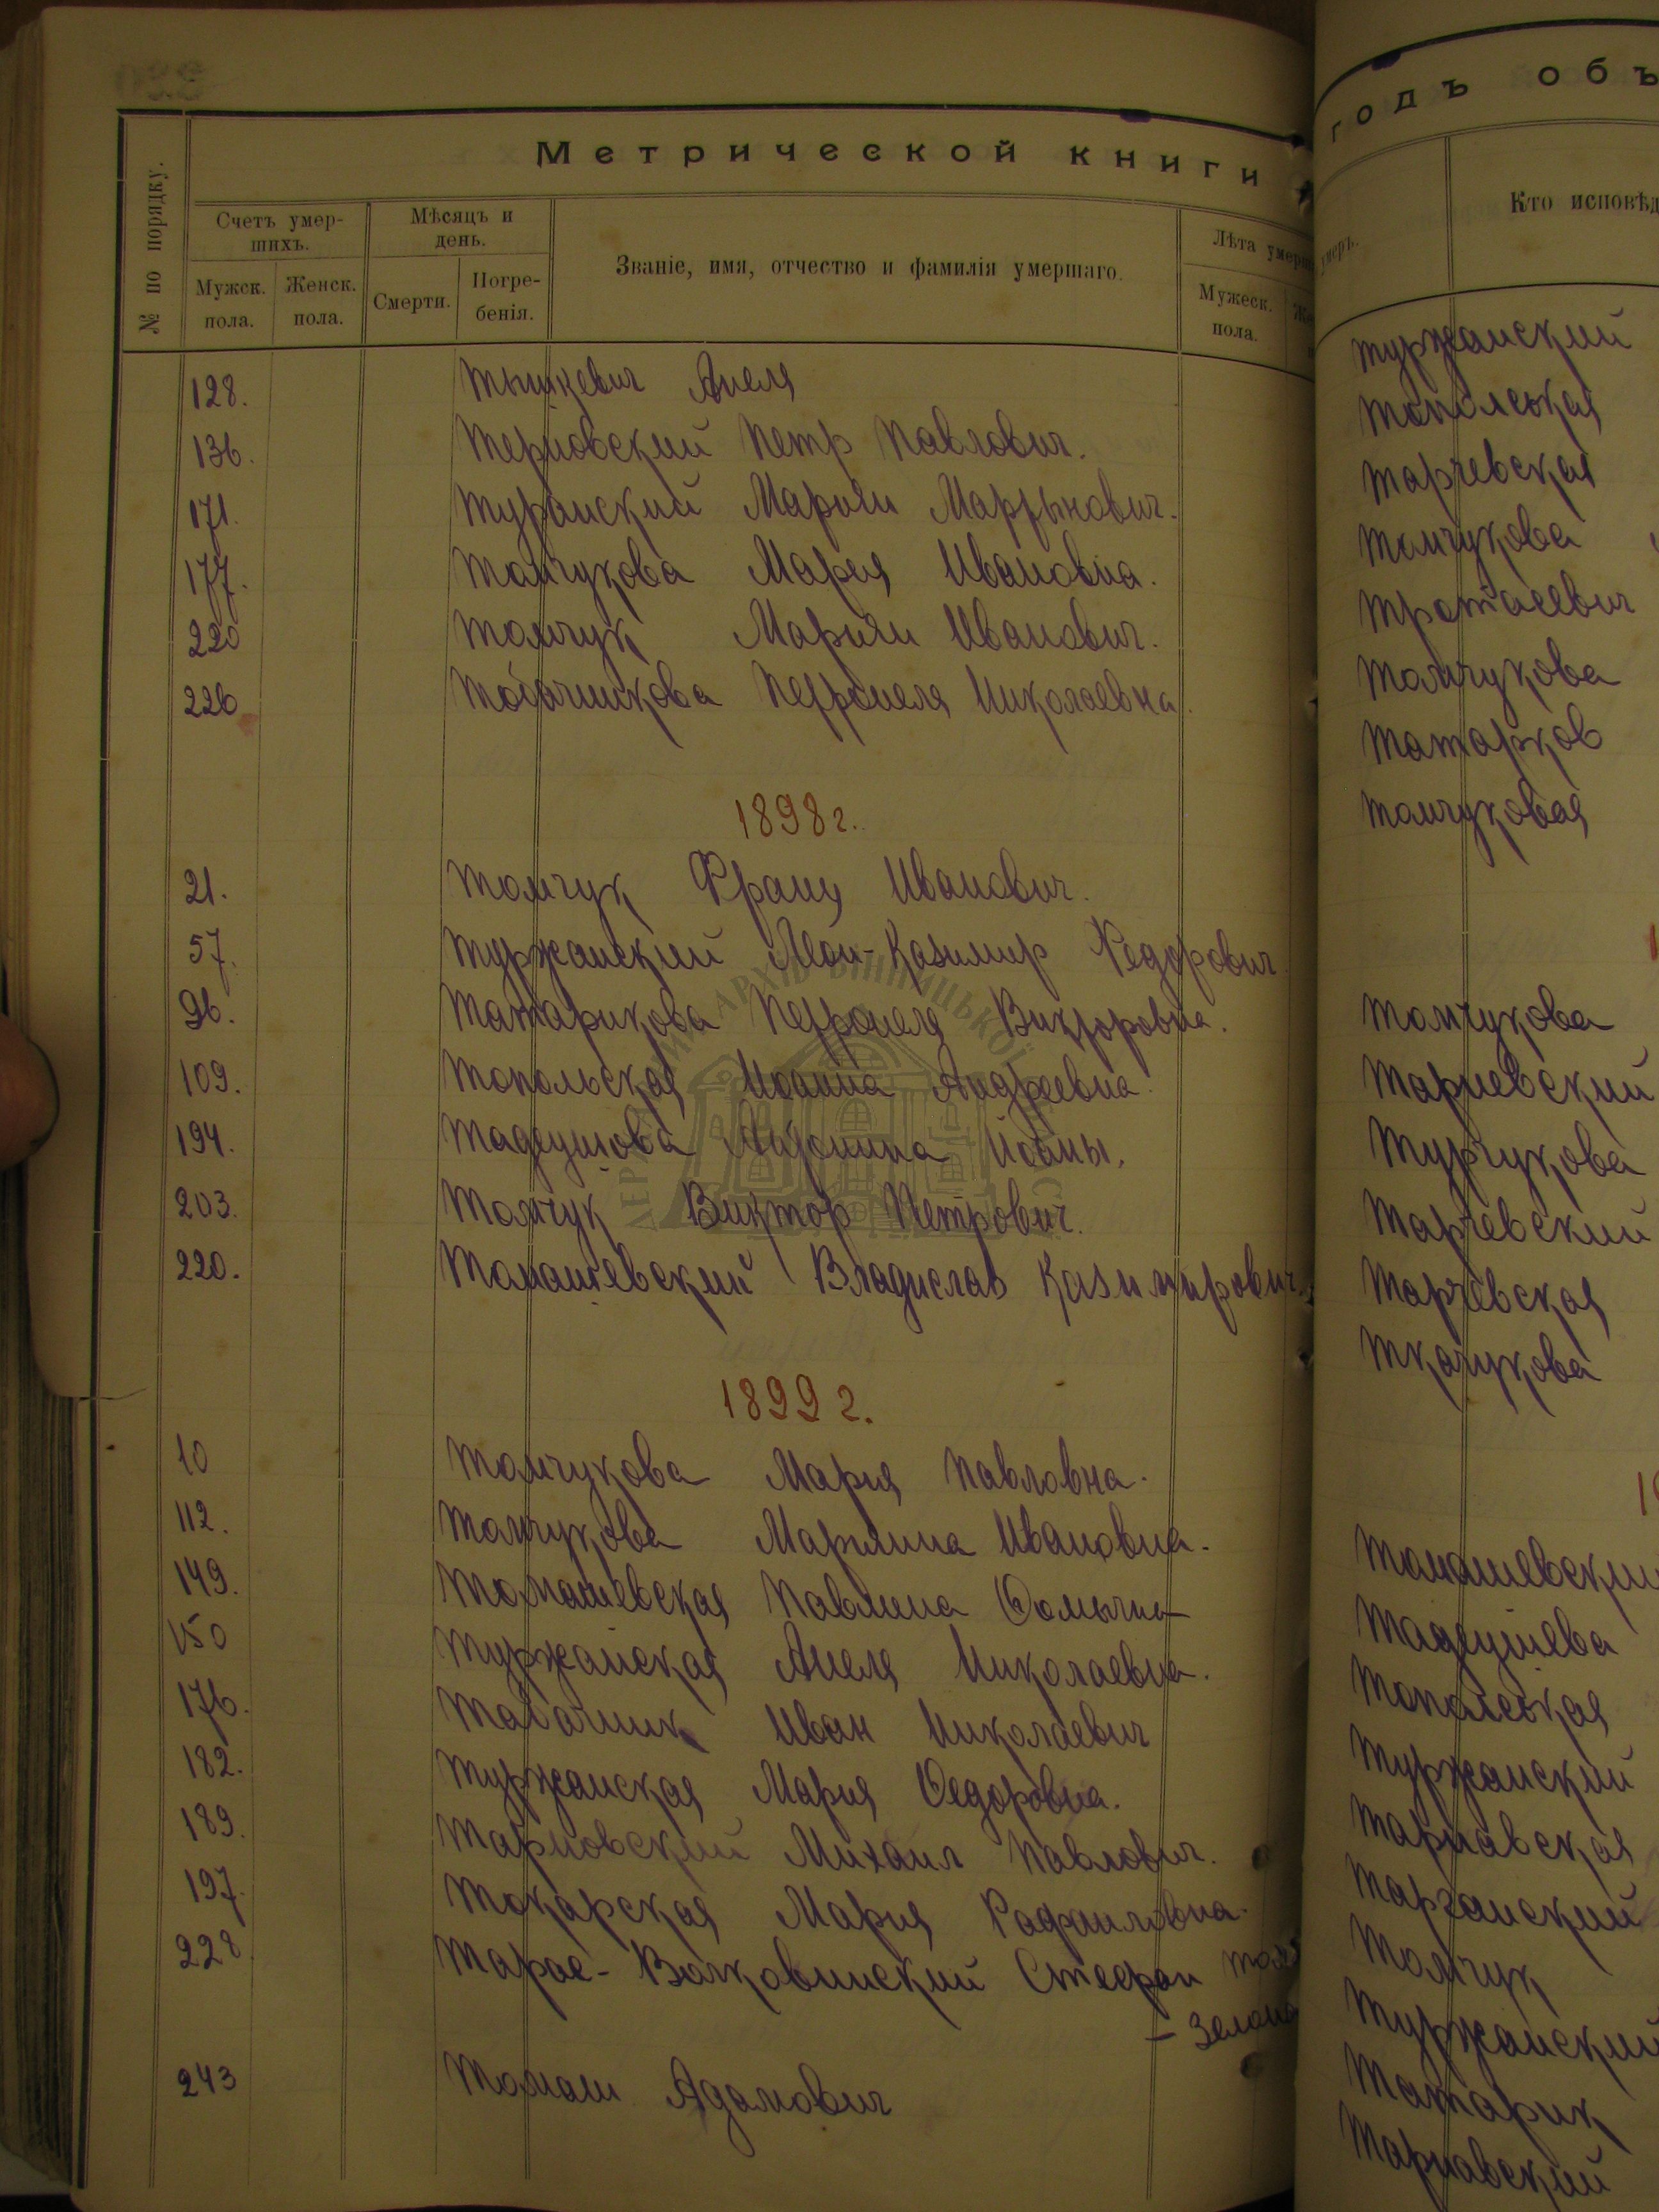 Метрической книги
№ по порядку.
Счетъ умер-
шихъ.
Мужск.
пола.
Женск.
пола.
Мѣсяцъ и
день.
Смерти.
Погре-
бенія.
Званіе, имя, отчество и фамилія умершаго.
Лѣта умерш
Мужеск.
пола.
128. Тышкевич Анеля
136. Терновский Петр Павлович.
171. Мариян Мартынович.
177. Томчукова Мария Ивановна.
220 Томчук Мариян Ивановић.
226 Табачникова Петронеля Николаевна.
1898 г.
21. Томчук Франц Иванович.
57. Туржанский Леон-Казимир Федорович
96. Татарикова Петронеля Викторовна.
109. Топольская Иоанна Андреевна.
194. Тадеушова Антонина Иоаны.
203. Томчук Виктор Петрович.
220. Томашевский Владислав Казимирович
1899 г.
10 Томчукова Мария Павловна.
112. Томчукова Мариянна Ивановна.
149. Томашевская Павлина
150 Туржанская Анеля Николаевна.
176. Табачник Иван Николаевич
182. Туржанская Мария Федоровна.
189. Тарновский Михаил Павлович.
197. Токарская Мария Рафаиловна.
228. Стефан
243 Томаш Адамович
годъ объ
умеръ.
Кто исповѣд
Туржанский
Топольская
Тарчевская
Томчукова
Томчукова
Томчуковая
Томчукова
Турчукова
Тарчевский
Тарчевская
Ткачукова
Томашевский
Тадеушева
Топольская
Туржанский
Тарнавская
Томчук
Туржанский
Татарик
Тарнавский